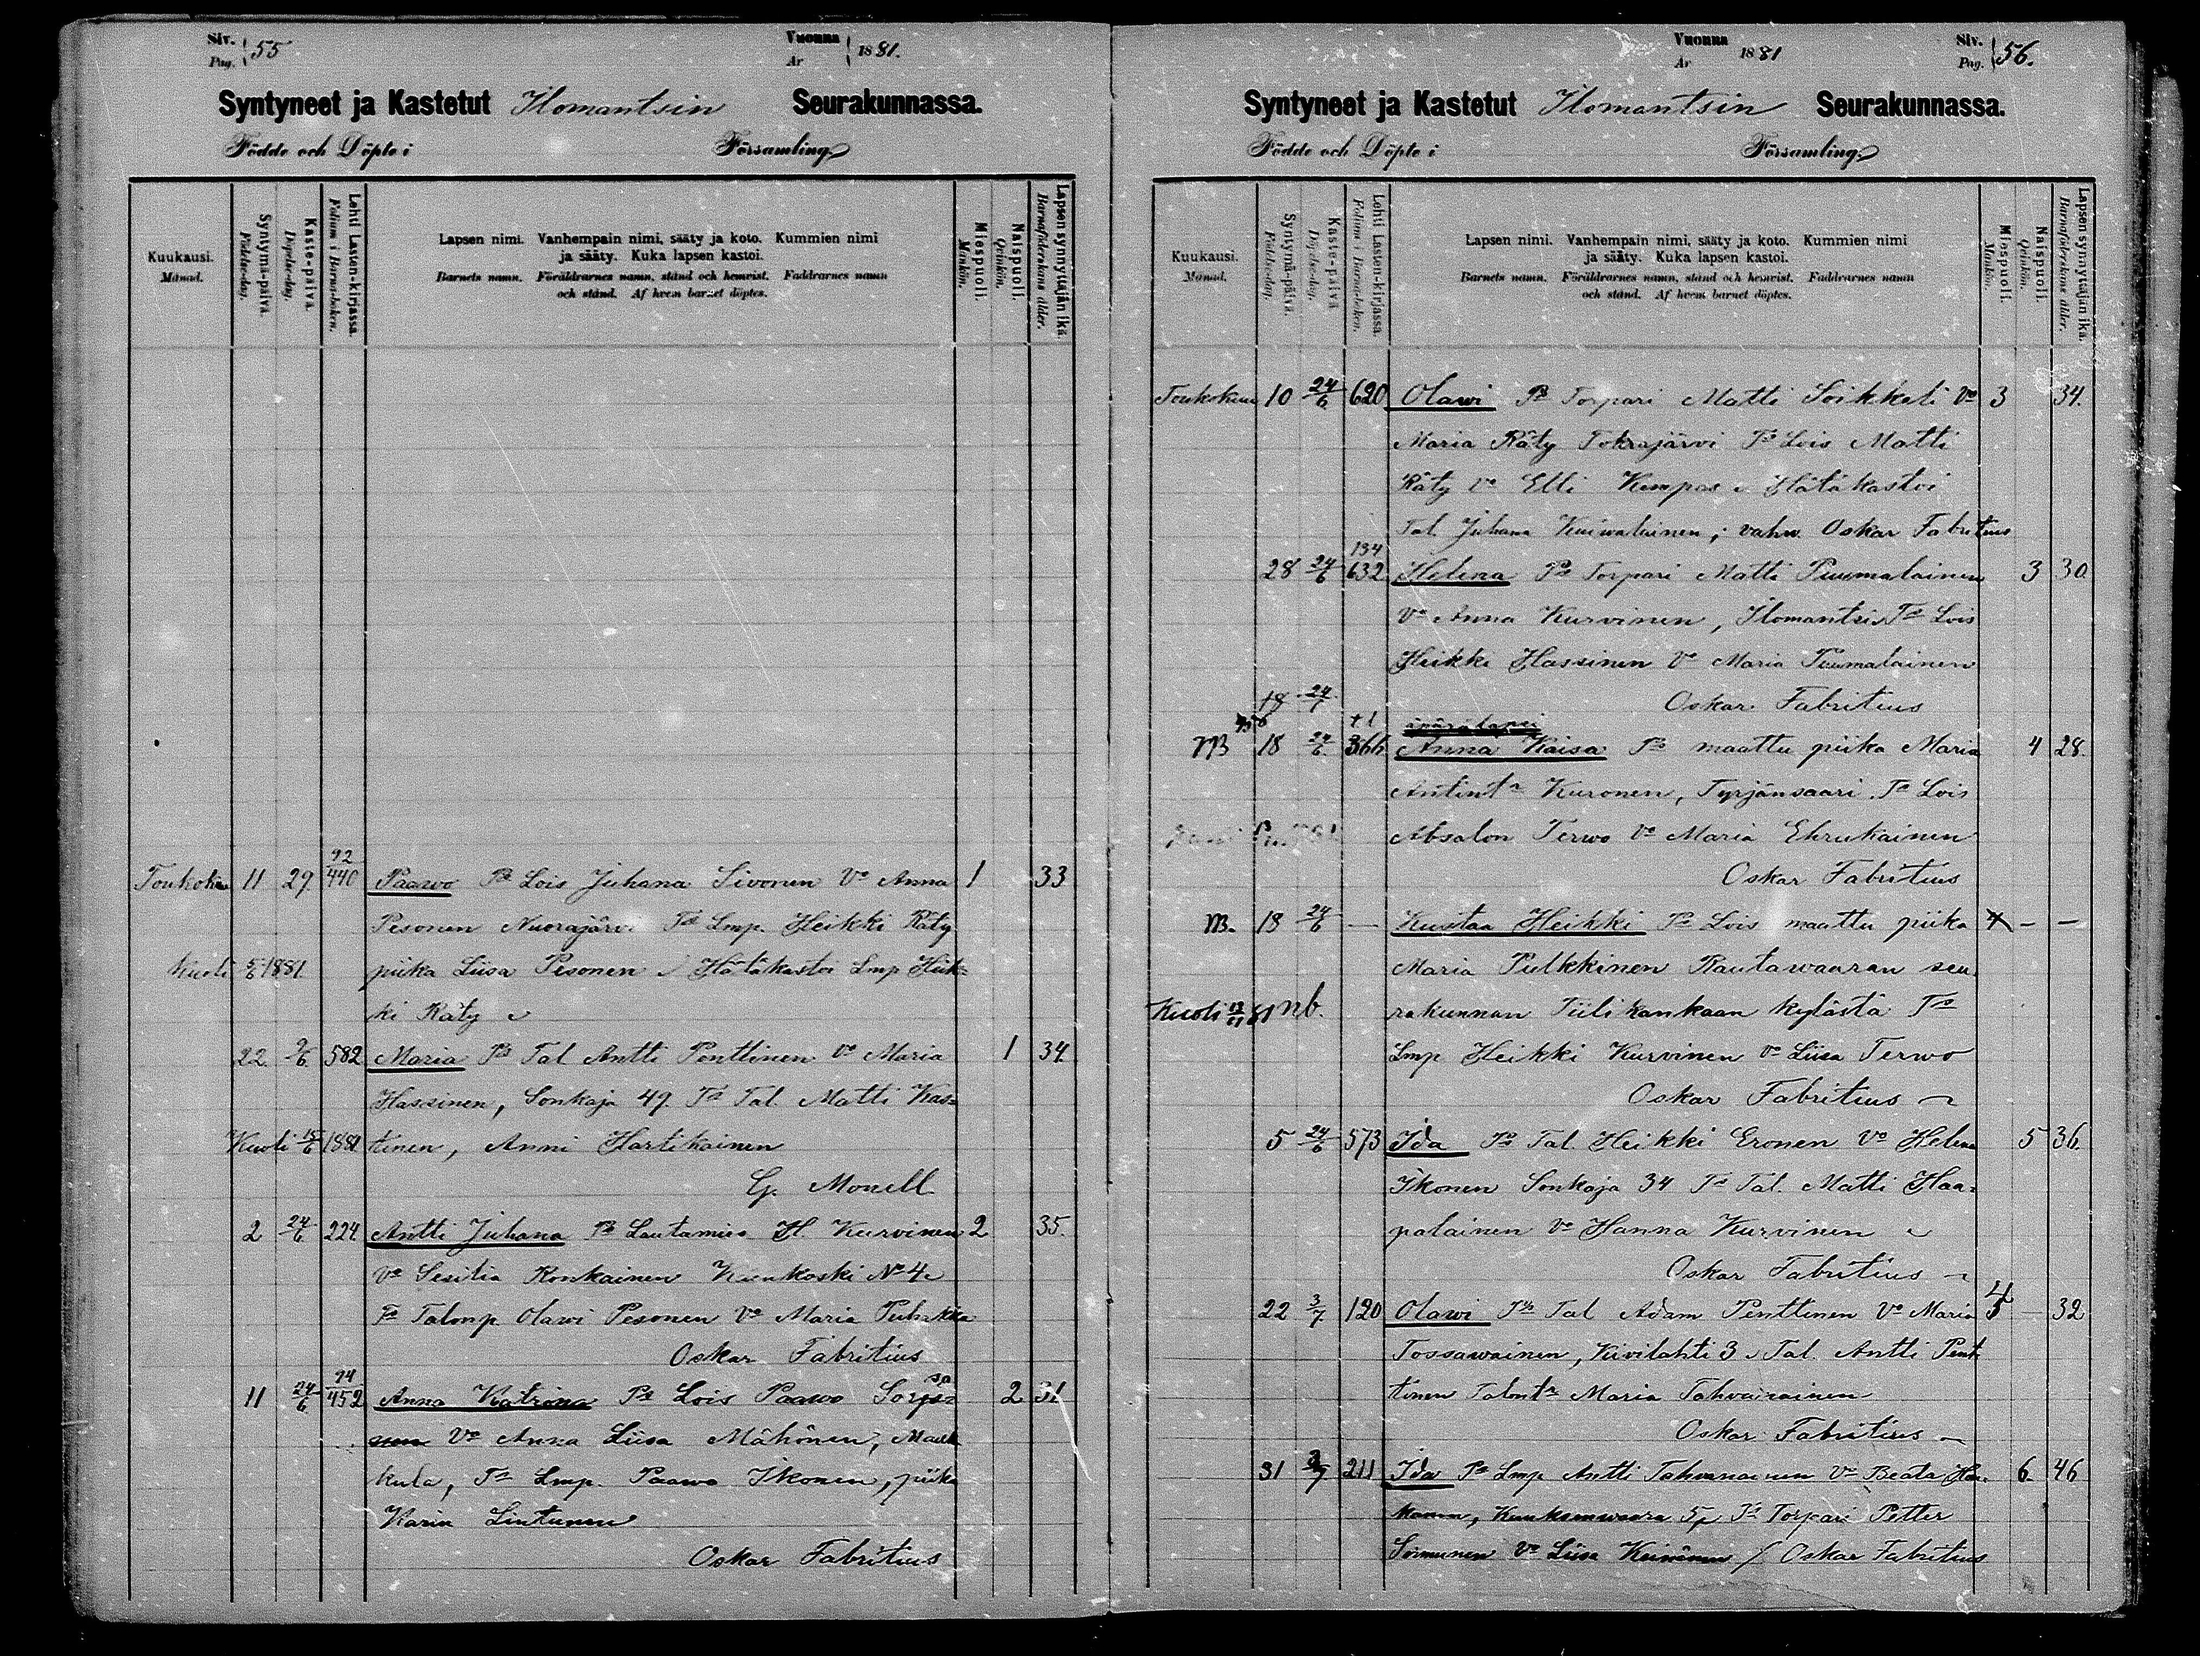 Siv. Pag. 55 Vuonna År 1881.
Syntyneet ja Kastetut Ilomantsin Seurakunnassa.
Födde och Döpte i Församling.
Kuukausi. Månad.
Syntymä-päivä. Födelse-dag.
Kaste-päivä. Döpelse-dag.
Lehti Lasten-kirjassa. Folium i Barna-boken.
Lapsen nimi. Vanhempain nimi, sääty ja koto. Kummien nimi
ja sääty. Kuka lapsen kastoi.
Barnets namn. Föräldrarnes namn, stånd och hemvist. Faddrarnes namn
och stånd. Af hvem barnet döptes.
Miespuoli. Mankön.
Naispuoli. Qvinkön.
Lapsen synnyttäjän ikä. Barnaföderskans ålder.
Toukokuu 11 29 92 440 Paawo Ps Lois Juhana Sivonen Vo Anna 1 33
Pesonen Nuorajärvi Ts Lmp. Heikki Räty
Kuoli 5/6 1881. piika Liisa Pesonen Hätäkastoi Lmp Heik=
ki Räty
22 9/6 582 Maria Ps Tal Antti Penttinen Vo Maria 1 34
Hassinen, Sonkaja 49. Ts Tal. Matti Kas=
Kuoli 15/6 1881 tinen, Anni Hartikainen
G. Monell
2 24/6 224 Antti Juhana Ps Lautamies H. Kurvinen 2 35.
Vo Sesilia Ronkainen Kuukoski No 4
Ts Talonp Olawi Pesonen Vo Maria Puhakka
Oskar Fabritius
11 24/6 94 452 Anna Katrina Ps Lois Paawo Sorpo= 2 31
nen Vo Anna Liisa Mähönen, Mauk
kula, Ts Lmp. Paawo Ikonen, piika
Karin Lintunen
Oskar Fabritius
Vuonna År 1881 Siv. Pag. 56.
Syntyneet ja Kastetut Ilomantsin Seurakunnassa.
Födde och Döpte i Församling.
Kuukausi. Månad.
Syntymä-päivä. Födelse-dag.
Kaste-päivä Döpelse-dag.
Lehti Lasten-kirjassa. Folium i Barna-boken.
Lapsen nimi. Vanhempain nimi, sääty ja koto. Kummien nimi
ja sääty. Kuka lapsen kastoi.
Barnets namn. Föräldrarnes namn, stånd och hemvist. Faddrarnes namn
och stånd. Af hvem barnet döptes.
Miespuoli. Mankön.
Naispuoli. Qvinkön.
Lapsen synnyttäjän ikä. Barnaföderskans ålder.
Toukokuu 10 24/6 620 Olawi Ps Torpari Matti Soikkeli Vo 3 34.
Maria Räty Tokrajärvi Ts Lois Matti
Räty Vo Elli Kempas Hätäkastoi
Tal. Juhana Kuiwalainen; vahw. Oskar Fabritius
28 24/6 134 632 Helena Ps Torpari Matti Puumalainen 3 30
Vo Anna Kurvinen, Ilomantsi Ts Lois
Heikki Hassinen Vo Maria Puumalainen
18 24/7 Oskar Fabritius
NB 18 24/6 366 Anna Kaisa Ps maattu piika Maria 4 28.
Antint:r Kuronen, Tyrjänsaari. Ts Lois
Absalon Terwo Vo Maria Ehrukainen
Oskar Fabritius
NB. 18 24/6 — Kustaa Heikki Ps Lois maattu piika 4 — —
Maria Pulkkinen Rautawaaran seu
Kuoli 13/11 81 nb. rakunnan Tiilikankaan kylästä Ts
Lmp Heikki Kurvinen Vo Liisa Terwo
Oskar Fabritius
5 24/6 573 Ida Ps Tal. Heikki Eronen Vo Helena 5 36.
Ikonen Sonkaja 34 Ts Tal. Matti Haa=
palainen Vo Hanna Kurvinen
Oskar Fabritius
22 3/7 120 Olawi Ps Tal Adam Penttinen Vo Maria 4 — 32
Tossawainen, Kivilahti 3 Tal. Antti Pent
tinen Talont:r Maria Tahvanainen
Oskar Fabritius
31 3/7 211 Ida Ps Lmp Antti Tahvanainen Vo Beata 6. 46
Kuuksenwaara 5, Ts Torpari Petter
Sormunen Vo Liisa Keinänen / Oskar Fabritius